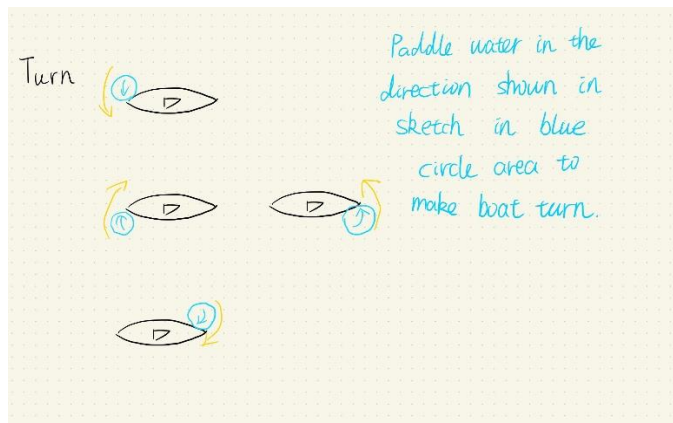 Turn
Paddle water in the
direction shown in
sketch in blue
circle area to
make boat turn.